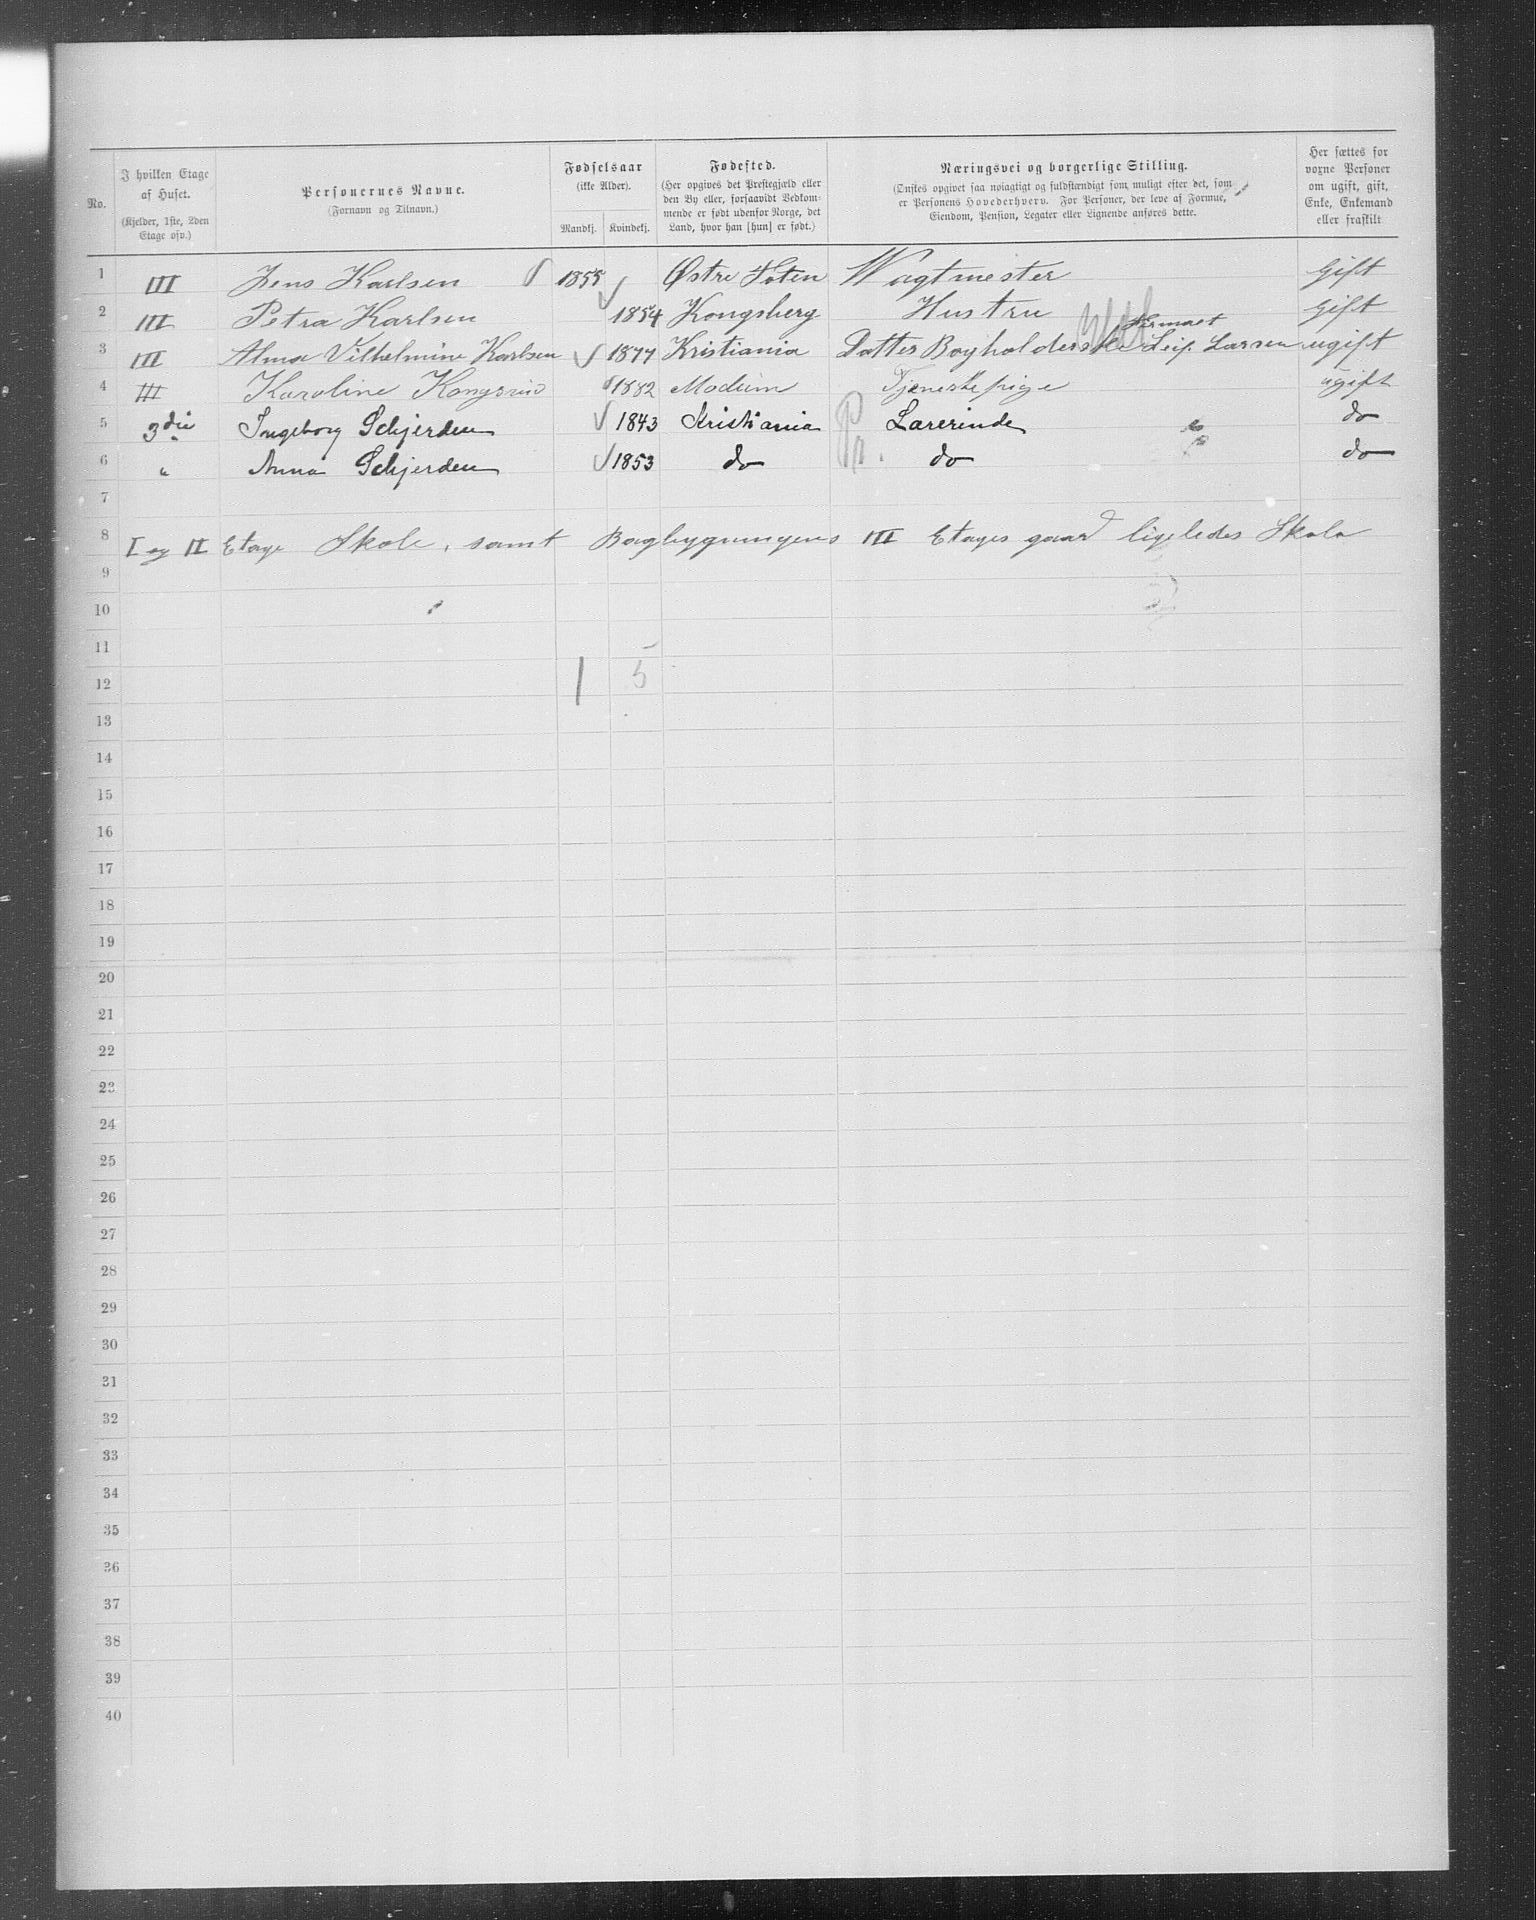 No. | I hvilken Etage af Huset. (Kjelder, 1ste, 2den Etage osv.) | Personernes Navne. (Fornavn og Tilnavn.) | Fødselsaar (ikke Alder). Mandkj. Kvindekj. | Fødested. (Her opgives det Prestegjæld eller den By eller, forsaavidt Vedkommende er født udenfor Norge, det Land, hvor han [hun] er født.) | Næringsvei og borgerlige Stilling. (Ønskes opgivet saa nøiagtigt og fuldstændigt som muligt efter det, som er Personens Hovederhverv. For Personer, der leve af Formue, Eiendom, Pension, Legater eller Lignende anføres dette. | Her sættes for voxne Personer om ugift, gift, Enke, Enkemand eller fraskilt
1 III Jens Karlsen 1855 Østre Toten Wagtmester Gift
2 III Petra Karlsen 1854 Kongsberg Hustru Gift
3 III Alma Vilhelmine Karlsen 1877 Kristiania Datter Bogholderske Leif Larsen ugift
4 III Karoline Kongsrud 1882 Modum Tjenestepige ugift
5 3die Ingeborg Schjerden 1843 Kristiania Lærerinde do
6 " Anna Schjerden 1853 do do do
7
8 I og II Etage Skole, samt Bagbygningens III Etages gaard ligeledes Skole
9
10
11
12 1 5
13
14
15
16
17
18
19
20
21
22
23
24
25
26
27
28
29
30
31
32
33
34
35
36
37
38
39
40